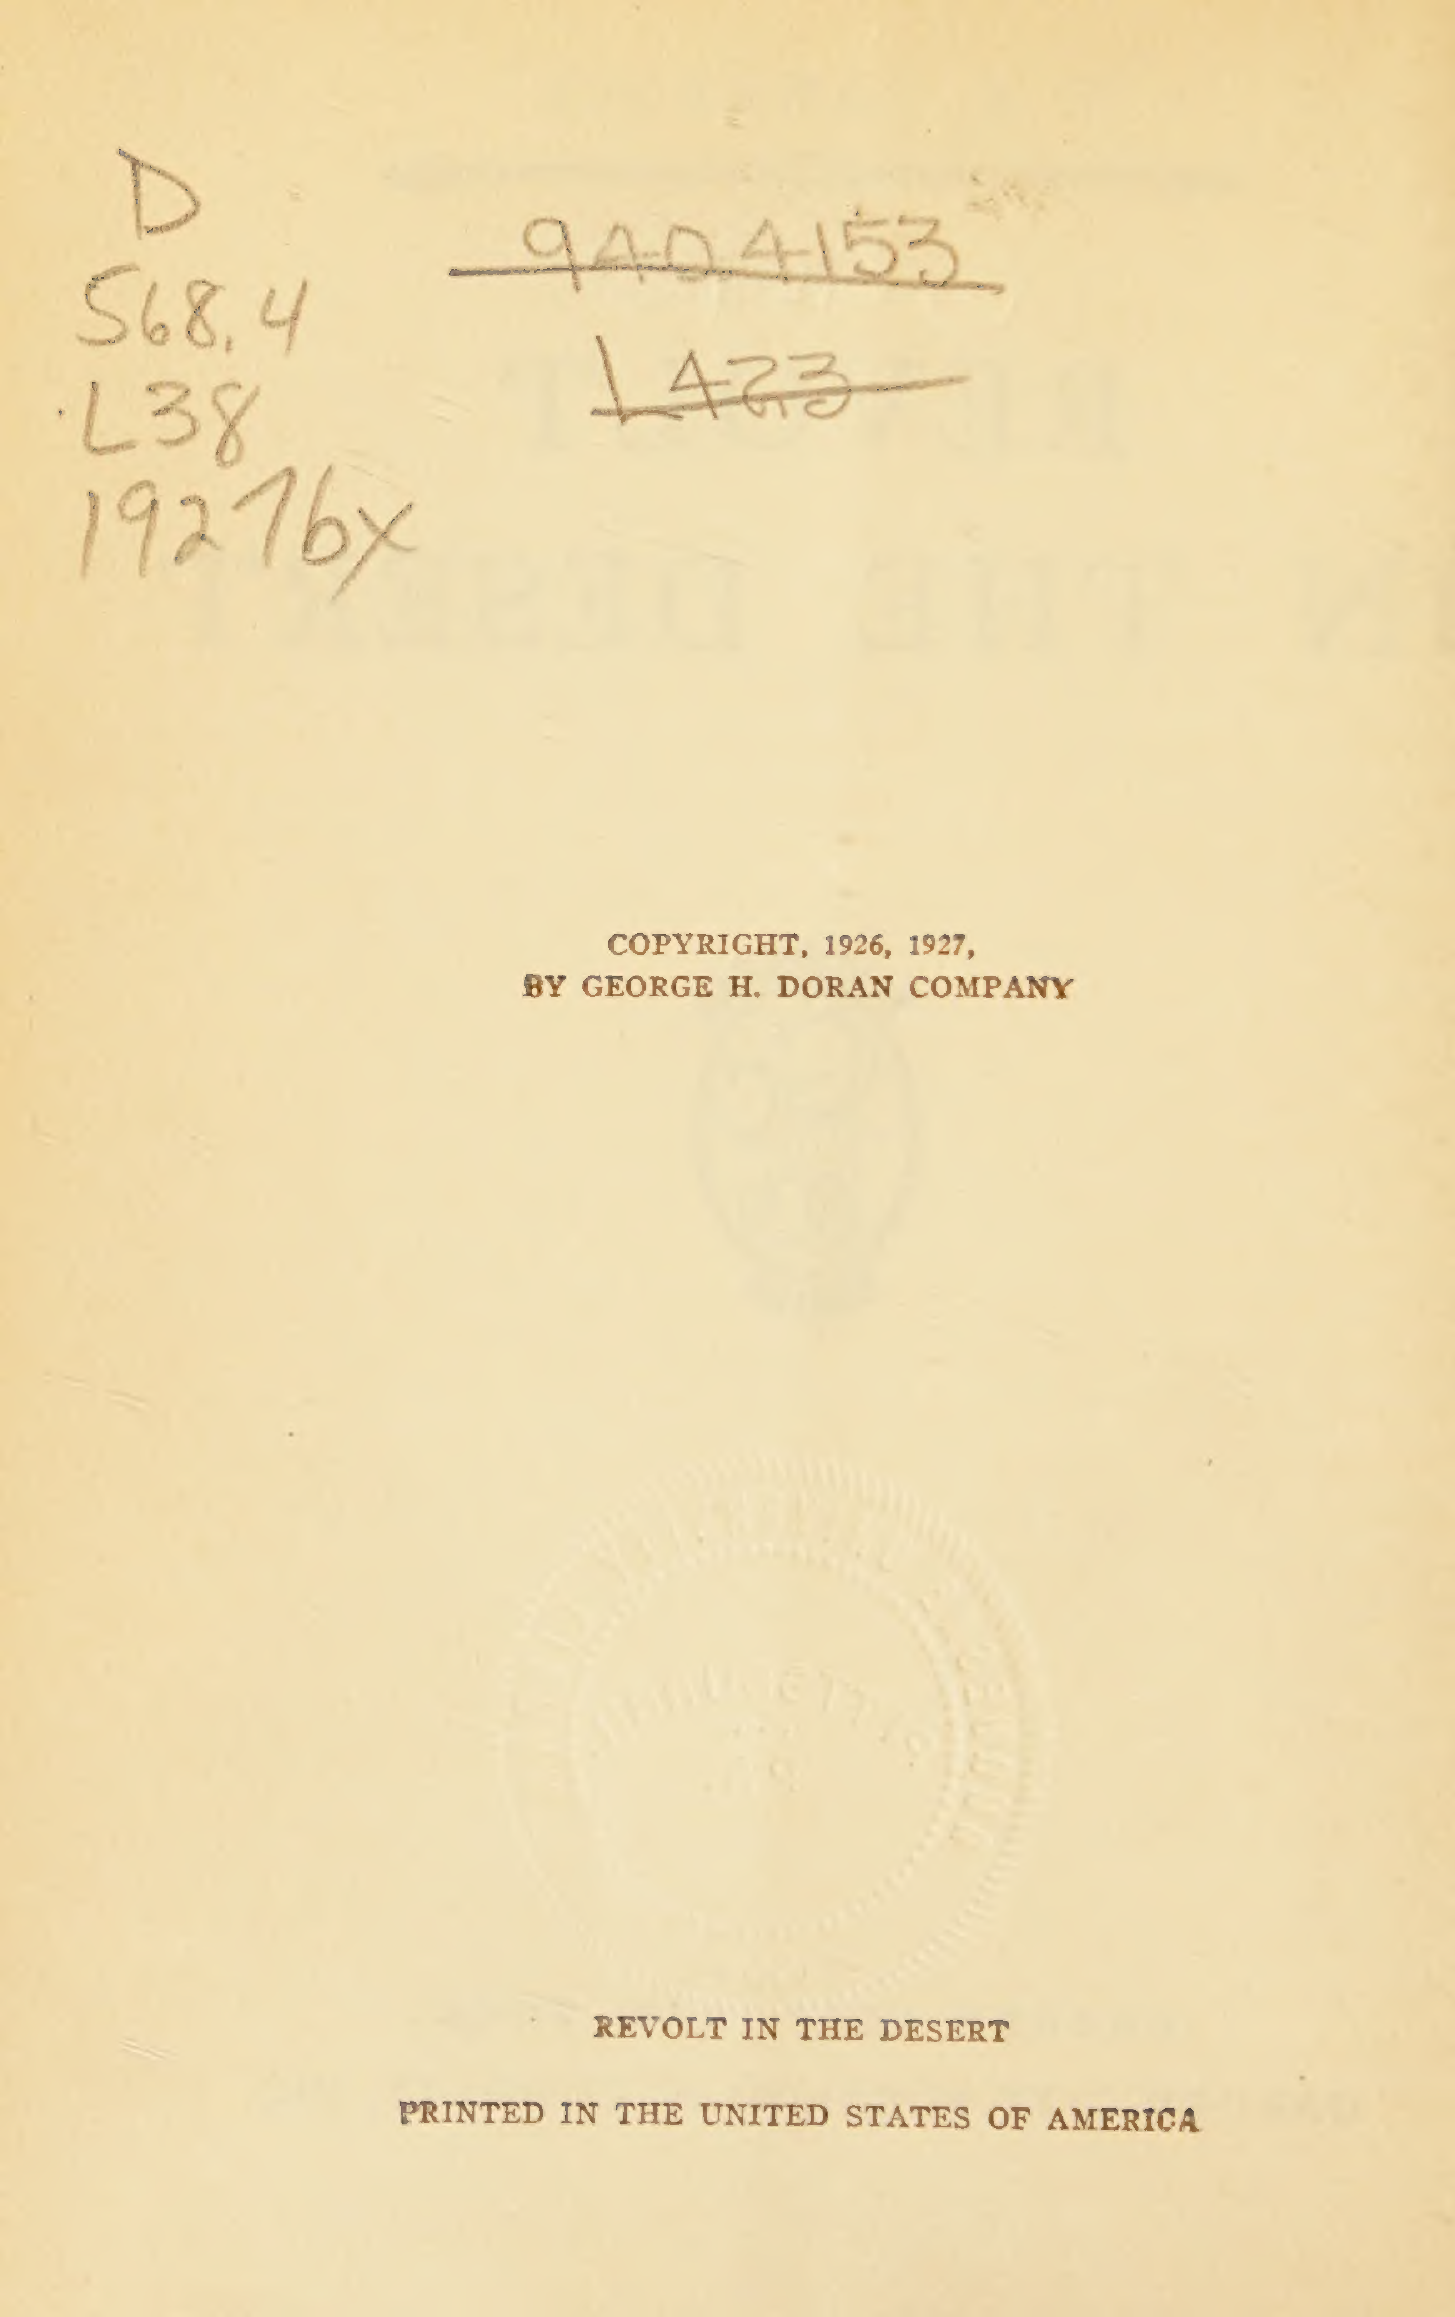 D
568.4
L38
1927bx
940.4153
L423
COPYRIGHT, 1926, 1927,
BY GEORGE H. DORAN COMPANY
REVOLT IN THE DESERT
PRINTED IN THE UNITED STATES OF AMERICA